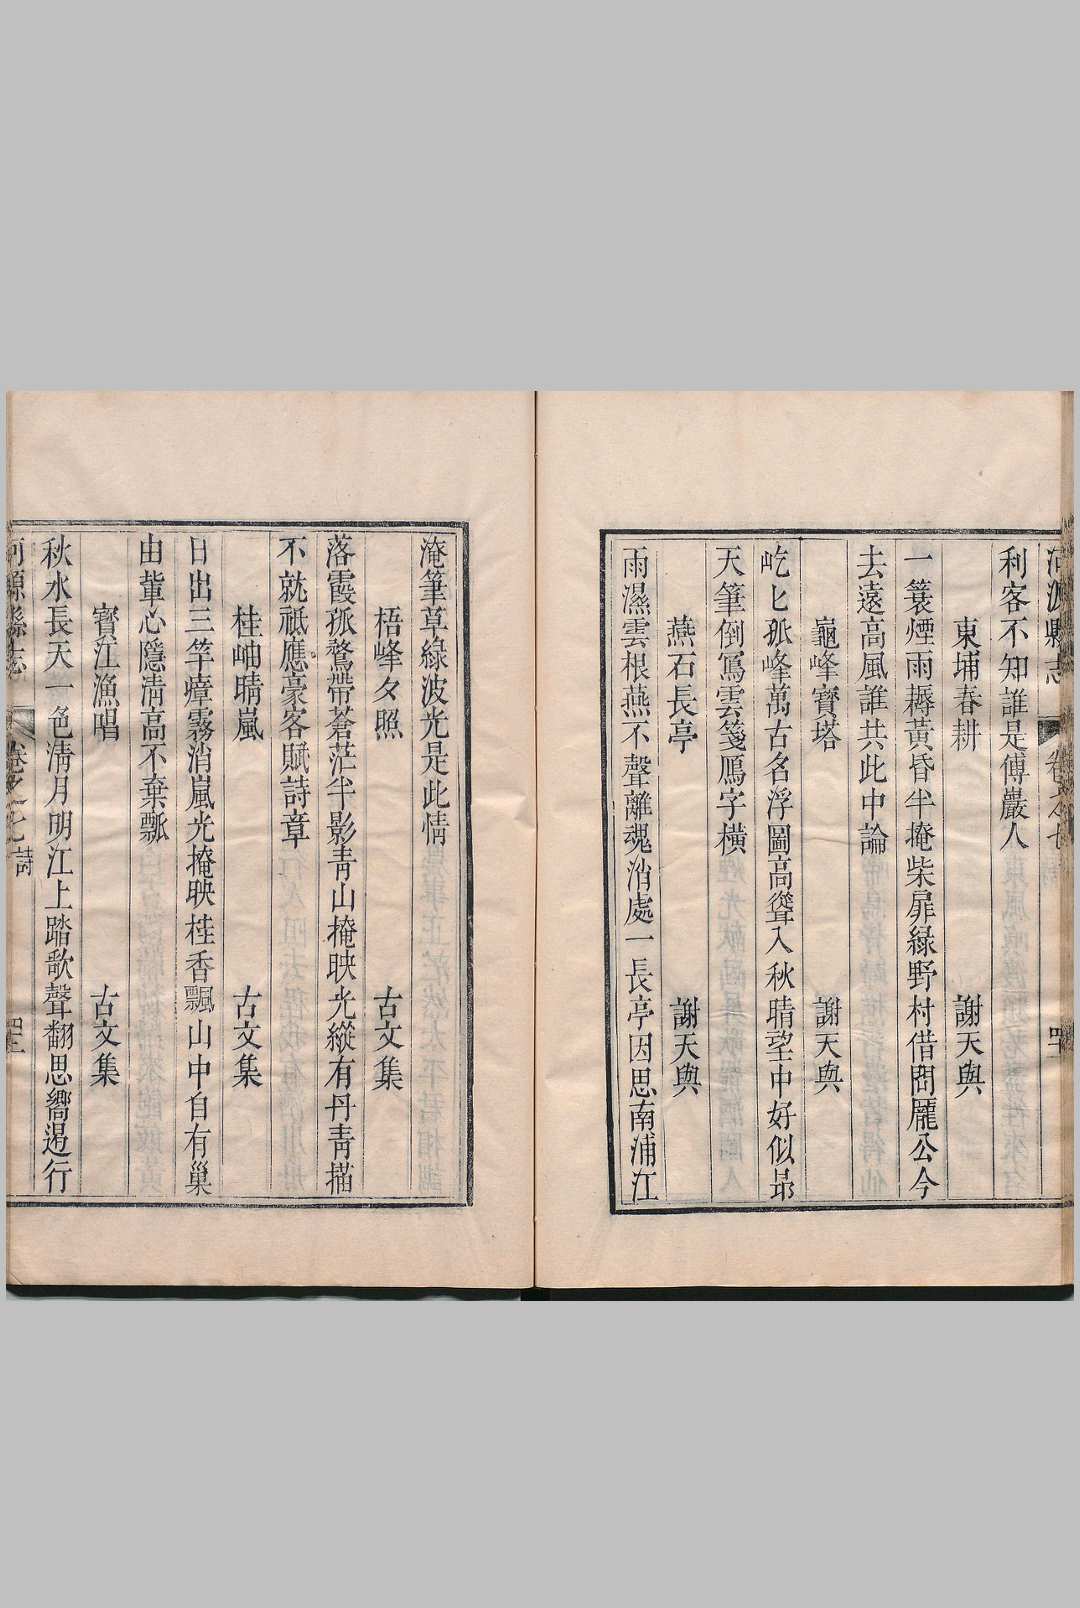 河源縣志 卷之七
利客不知誰是傅巖人
東埔春耕 謝天與
一簑煙雨耨黃昏半掩柴扉綠野村借問龐公今
去遠高風誰共此中論
龜峰寶塔 謝天與
屹匕孤峰萬古名浮圖高聳入秋晴望中好似昻
天筆倒寫雲箋鴈字橫
燕石長亭 謝天與
雨濕雲根燕不聲離魂消處一長亭因思南浦江
淹筆草綠波光是此情
梧峰夕照 古文集
落霞孤鶩帶蒼茫半影靑山掩映光縱有丹靑描
不就祗應豪客賦詩章
桂岫晴嵐 古文集
日出三竿瘴霧消嵐光掩映桂香飄山中自有巢
由輩心隱淸高不棄瓢
寳江漁唱 古文集
秋水長天一色淸月明江上踏歌聲翻思嚮遏行
河源縣志 卷之七 詩 四三